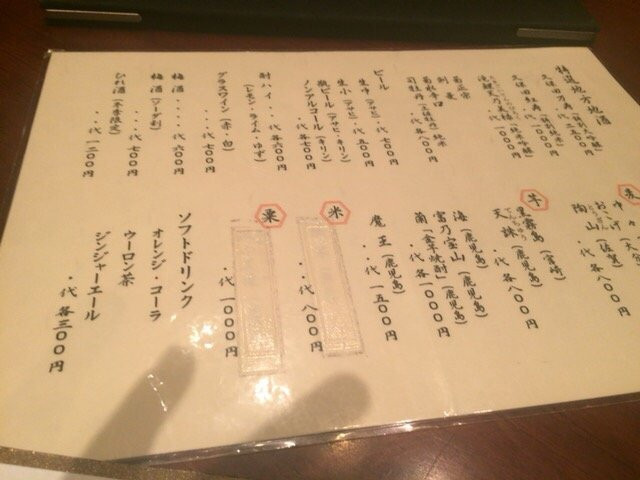 特選地方地酒
久保田万寿
久保田紅寿
・・代一〇〇〇円
菊正宗
剣菱
菊水辛口
司牡丹
・・代各八〇〇円
ビール
生中(アサヒ)・・代七〇〇円
生小(アサヒ)・・代五〇〇円
瓶ビール(アサヒ・キリン)
ノンアルコール(キリン)
・・代各七〇〇円
酎ハイ・・代各六〇〇円
(レモン・ライム・ゆず)
グラスワイン(赤・白)
・・代七〇〇円
梅酒・・・・代六〇〇円
梅酒(ソーダ割)
・・代七〇〇円
ひれ酒(冬季限定)
・・代一二〇〇円
麦
(大分)
(佐賀)
陶山
・・代各八〇〇円
芋
黒霧島(宮崎)
天誅(鹿児島)
・・代各八〇〇円
海(鹿児島)
富乃宝山(鹿児島)
(鹿児島)
・・代各一〇〇〇円
魔王(鹿児島)
・・代一五〇〇円
米
・・代八〇〇円
粟
・・代一〇〇〇円
ソフトドリンク
オレンジ・コーラ
ウーロン茶
ジンジャーエール
・・代各三〇〇円